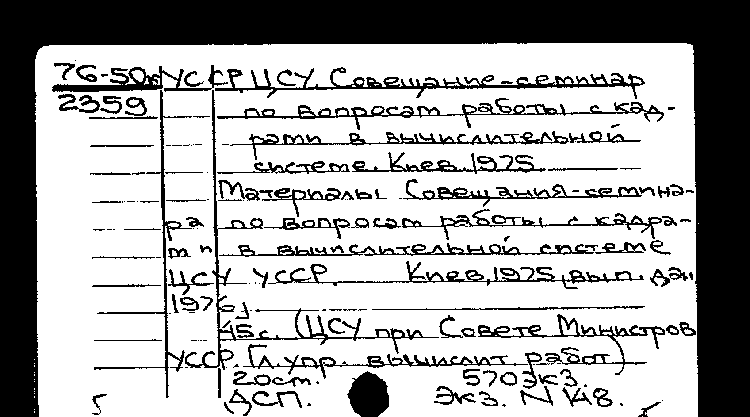 76-50 УССР. ЦСУ. Совещание-семинар
2359 по вопросам работы с кад-
рами в вычислительной
системе. Киев. 1975.
Материалы Совещания-семина-
ра по вопросам работы с кадра-
ми в вычислительной системе
ЦСУ УССР. Киев, 1975, [вып. дан.
1976].
45 с. (ЦСУ при Совете Министров
УССР. Гл. упр. вычислит работ)
20 ст. 570 экз.
5 ДСП. Экз. N 148.